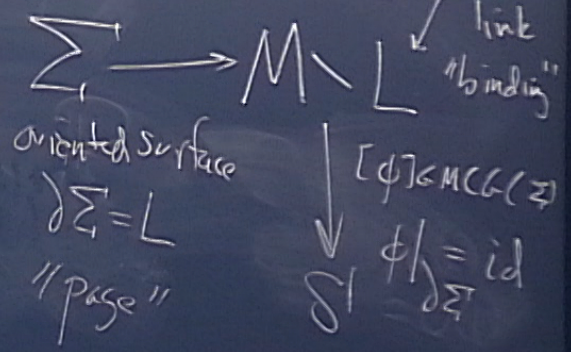 Σ → M \ L
link
"binding"
oriented surface
∂Σ = L
"page"
[ϕ] ∈ MCG(Σ)
ϕ|∂Σ = id
S¹